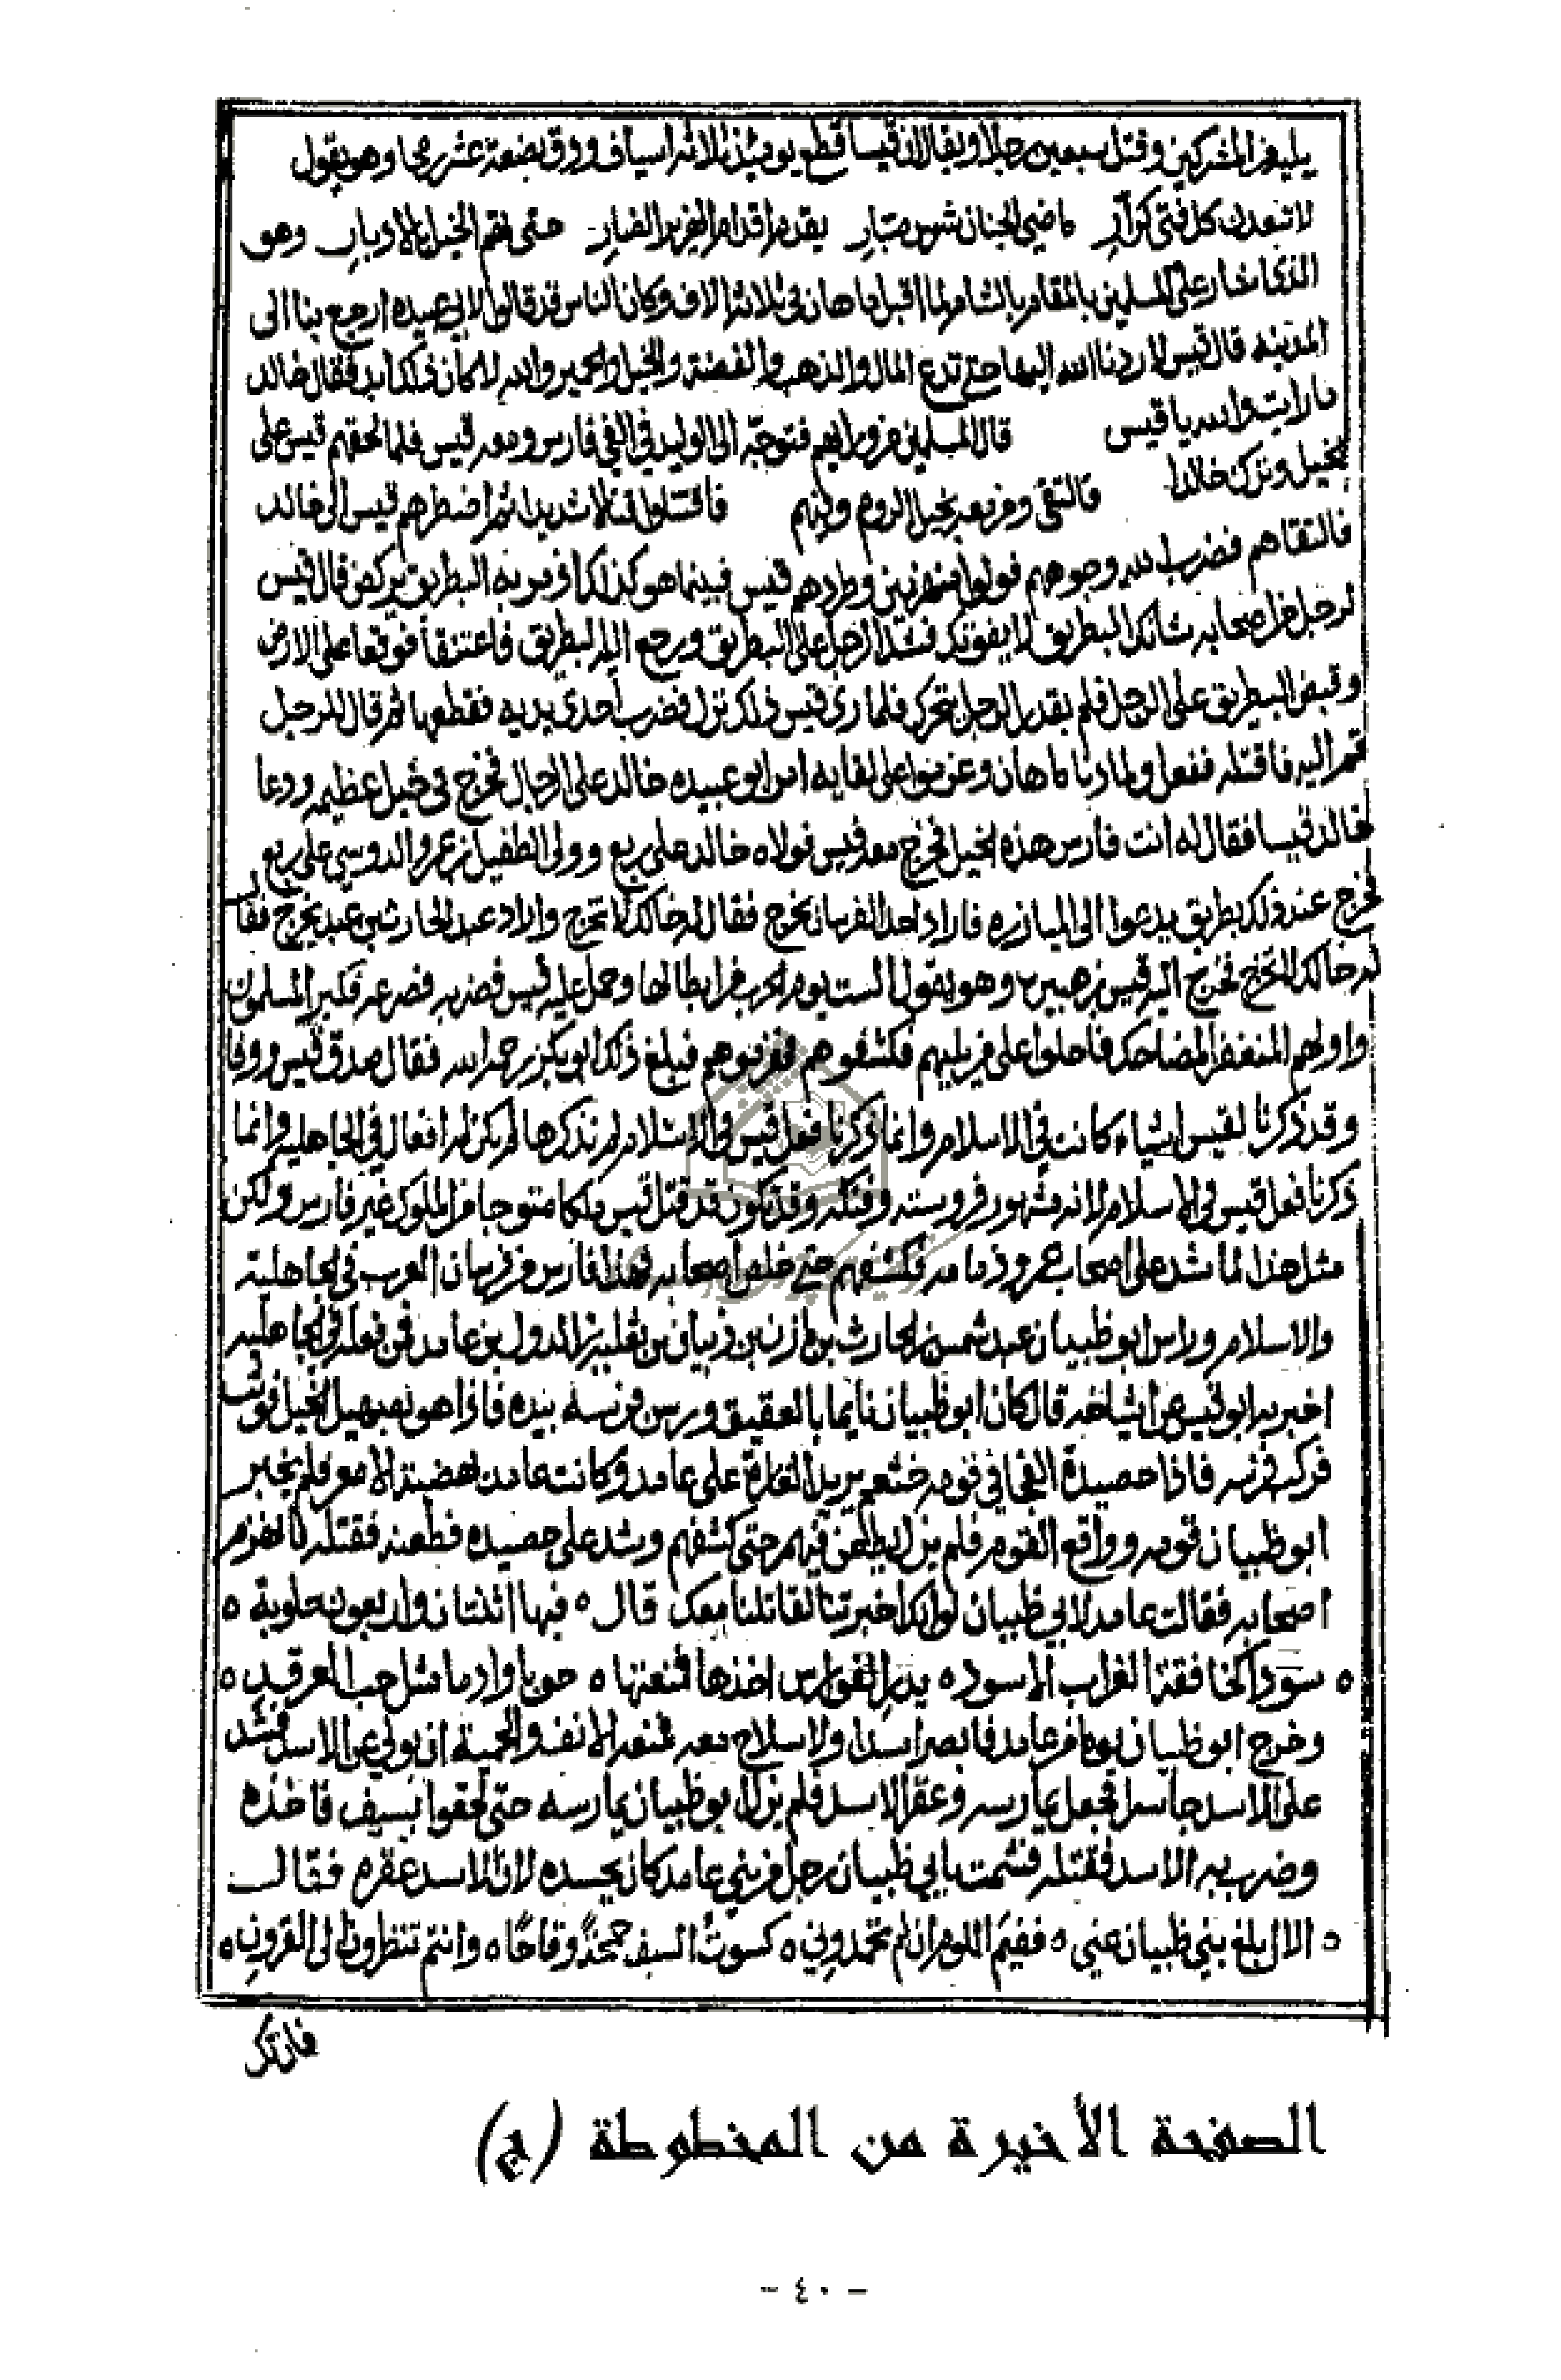 يليهم المشركين وقتل سبعين رجلا ويقال ان قيسا قطع يومئذ ثلاثة اسياف ودق بضعة عشر رمحا وهو يقول
لا تبعدن كل فتى كرّار ماضي الجنان شرس صبّار يقدم اقدام الهزبر الضارِ حتى تهم الخيل بالادبارِ وهو
الذي اشار على المسلمين بالمقام بالشام لما اقبل ماهان في ثلاثة الاف وكان الناس قد قالوا لابي عبيده ارجع بنا الى
المدينه قال قيس لا ردنا الله اليها حتى تدع المال والذهب والفضة والخيل والحمير والله لا كان ذلك ابد فقال خالد
ما رايت والله يا قيس قال المسلمين فتوجّه الى الوليد في الفي فارس ومعه قيس فلما لحقهم قيس على
الخيل وترك خالدا فالتقى ومن معه بخيل الروم فاقتتلوا قتالا شديدا ثم اضطرهم قيس الى خالد
فالتقاهم فضرب وجوههم فولوا منهزمين وطردهم قيس فبينما هو كذلك اذ مر به البطريق يركض قال قيس
لرجل من اصحابه شانك البطريق لا يفوتك فشد الرجل على البطريق ورجع اليه البطريق فاعتنقا فوقعا على الارض
وقبض البطريق على الرجل فلم يقدر الرجل يتحرك فلما رى قيس ذلك نزل فضرب احدى يديه فقطعها ثم قال للرجل
قم اليه فاقتله ففعل ولما دنا ماهان وعزموا على لقايه امر ابو عبيده خالد على الرجال فخرج في خيل عظيمه ودعا
خالد قيسا فقال له انت فارس هذه الخيل فخرج معه قيس فولاه خالد على ربع وولى الطفيل بن عمرو الدوسي على ربع
فخرج عند ذلك بطريق يدعوا الى المبازره فاراد احد الفرسان يخرج فقال له خالد لا تخرج واراد عبد الحارث بن عبد يخرج فقال
له خالد لا تخرج فخرج اليه قيس بن هبيره وهو يقول الست يوم الحرب من ابطالها وحمل عليه قيس فضربه فصرعه فكبر المسلمون
فاحملوا على من يليهم فكشفوهم فهزموهم فبلغ ذلك ابو بكر رحمه الله فقال صدق قيس ووفا
وقد ذكرنا لقيس اشياء كانت في الاسلام وانما ذكرنا فعل قيس في الاسلام لم نذكرها لم يكن له افعال في الجاهليه وانما
ذكرنا فعل قيس في الاسلام لانه مشهور فروسته وفتكه وقد يكون قد قتل قيس ملكا متوجا من الملوك غير فارس ولكن
مثل هذا لما شد على اصحاب فكشفهم حتى خلص اصحابه فهذا فارس من فرسان العرب في الجاهلية
والاسلام وراس ابو ظبيان عبد شمس بن الحارث بن مازن بن ذبيان بن ثعلبة بن الدول بن غامد فمن فعله في الجاهليه
اخبر به ابو قيس عن اشياخه قال كان ابو ظبيان نايما بالعقيق ورسن فرسه بيده فاذا هو بصهيل الخيل فوثب
فركب فرسه فاذا حصيدة القحافي في قومه خثعم يريد الغارة على غامد وكانت غامد فلم يخبر
ابو ظبيان قومه وواقع القوم فلم يزل يطعن فيهم حتى كشفهم وشد على حصيده فطعنه فقتله فانهزم
اصحابه فقالت غامد لابي ظبيان لو انك اخبرتنا لقاتلنا معك قال ٥ فيها اثنتان واربعون حلوبة ٥
٥ سوداً كخافقة الغراب الاسود ٥ اخذها فمنعتها ٥ مثل
وخرج ابو ظبيان يوما من غامد فابصر اسدا ولا سلاح معه فمنعه الانف والحمية ان يولي عن الاسد فشد
على الاسد حاسرا فجعل يمارسه وعقر الاسد فلم يزل ابو ظبيان يمارسه حتى لحقوا بسيف فاخذه
وضرب به الاسد فقتله فشمت بابي ظبيان رجل من بني غامد كان يحسده لان الاسد عقره فقال
٥ الا ابلغ بني ظبيان عني ٥ ففيم اللوم ان لم تحمدوني ٥ كسوت السيف وانتم تنظرون الى القرون ٥
فان تك
الصفحة الأخيرة من المخطوطة (ج)
- ٤٠ -